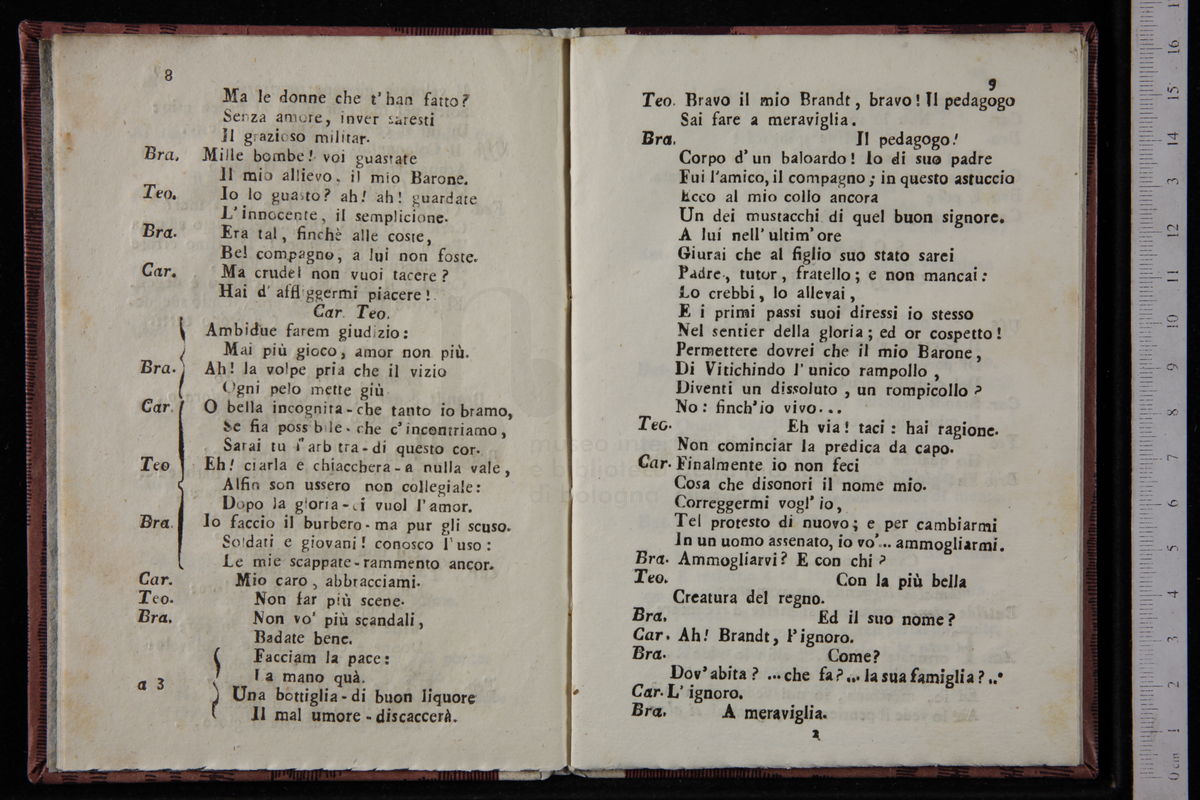 8
Ma le donne che t' han fatto?
Senza amore, inver saresti
Il grazioso militar.
Bra. Mille bombe! voi guastate
Il mio allievo, il mio Barone.
Teo. Io lo guasto? ah! ah! guardate
L' innocente, il semplicione.
Bra. Era tal, finchè alle coste,
Bel compagno, a lui non foste.
Car. Ma crudel non vuoi tacere?
Hai d' affliggermi piacere!
Car. Teo.
Ambidue farem giudizio:
Mai più gioco, amor non più.
Bra. Ah! la volpe pria che il vizio
Ogni pelo mette giù
Car. O bella incognita - che tanto io bramo,
Se fia possibile - che c' incontriamo,
Sarai tu l' arbitra - di questo cor.
Teo Eh! ciarla e chiacchera - a nulla vale,
Alfin son ussero non collegiale:
Dopo la gloria - ci vuol l' amor.
Bra. Io faccio il burbero - ma pur gli scuso.
Soldati e giovani! conosco l' uso:
Le mie scappate - rammento ancor.
Car. Mio caro, abbracciami.
Teo. Non far più scene.
Bra. Non vo' più scandali,
Badate bene.
Facciam la pace:
La mano quà.
a 3 Una bottiglia - di buon liquore
Il mal umore - discaccerà.
9
Teo. Bravo il mio Brandt, bravo! Il pedagogo
Sai fare a meraviglia.
Bra. Il pedagogo!
Corpo d' un baloardo! Io di suo padre
Fui l'amico, il compagno; in questo astuccio
Ecco al mio collo ancora
Un dei mustacchi di quel buon signore.
A lui nell' ultim' ore
Giurai che al figlio suo stato sarei
Padre, tutor, fratello; e non mancai:
Lo crebbi, lo allevai,
E i primi passi suoi diressi io stesso
Nel sentier della gloria; ed or cospetto!
Permettere dovrei che il mio Barone,
Di Vitichindo l' unico rampollo,
Diventi un dissoluto, un rompicollo?
No: finch'io vivo...
Teo. Eh via! taci: hai ragione.
Non cominciar la predica da capo.
Car. Finalmente io non feci
Cosa che disonori il nome mio.
Correggermi vogl' io,
Tel protesto di nuovo; e per cambiarmi
In un uomo assenato, io vo'... ammogliarmi.
Bra. Ammogliarvi? E con chi?
Teo. Con la più bella
Creatura del regno.
Bra. Ed il suo nome?
Car. Ah! Brandt, l'ignoro.
Bra. Come?
Dov' abita? ...che fa?... la sua famiglia?...
Car. L' ignoro.
Bra. A meraviglia.
2